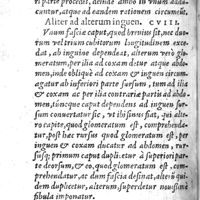 ri parte procedet, deinde ambo in vnum abdu-
cantur, atque ad eandem rationem circumeat.
Aliter ad alterum inguen. CVIII.
Vnum fascię caput, quod breuius sit, nec duo-
rum vel trium cubitorum longitudinem exce-
dat, ab inguine dependeat, alterum verò glo-
meratum, per ilia ad coxam detur atque abdo-
men, inde obliquè ad coxam & inguen circum-
agatur ab inferiori parte sursum, tum ad ilia
& coxam ac per ilia contraria partis ad abdo-
men, tuncque caput dependens ad inguen sur-
sum conuertatur sic, vt comprehendatur, qui al-
tero capite, quod glomeratum est, comprehenda-
tur, post hęc rursus quod glomeratum est, per
inguen & coxam ducatur ad abdomen, rur-
susq; primum caput dupli.etur à superiori par-
te deorsum, & eo, quod glomeratum est, com-
prehendatur, ac dum fascia desinat, alteri qui-
dem duplicetur, alterum, superdetur nouissimè
fibula imponatur.